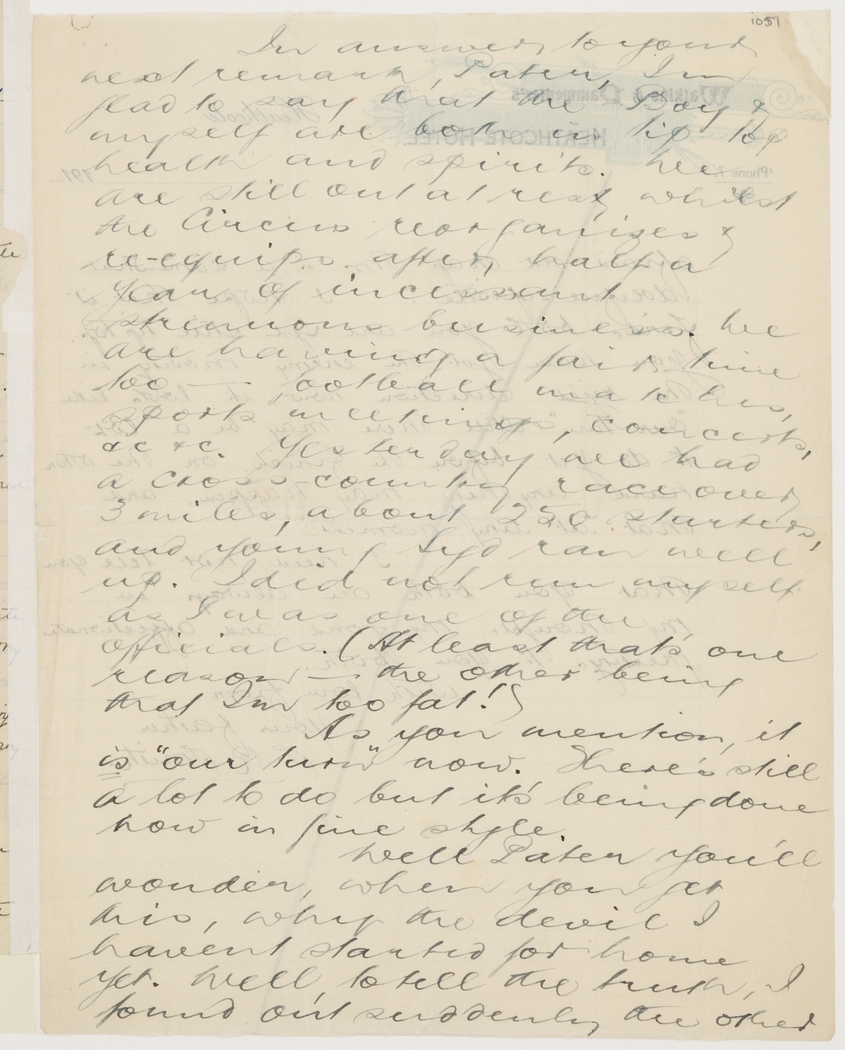 1051
In answer to your
next remark, Pater, I'm
glad to say that the Boy &
myself are both in tip top
health and spirits. We
are still out at rest whilst
the Circus reorganises &
re-equips after half a
year of incessant
strenuous business. We
are having a fair time
too — football matches,
sports meetings, concerts,
&c &c. Yesterday all had
a cross-country race over
3 miles, about 250 starters,
and young Syd ran well
up. I did not run myself
as I was one of the
officials. (At least that's one
reason — the other being
that I'm too fat!)
As you mention, it
is "our turn" now. There's still
a lot to do but it's being done
now in fine style.
Well Pater you'll
wonder, when you get
this, why the devil I
havent started for home
yet. Well, to tell the truth, I
found out suddenly the other